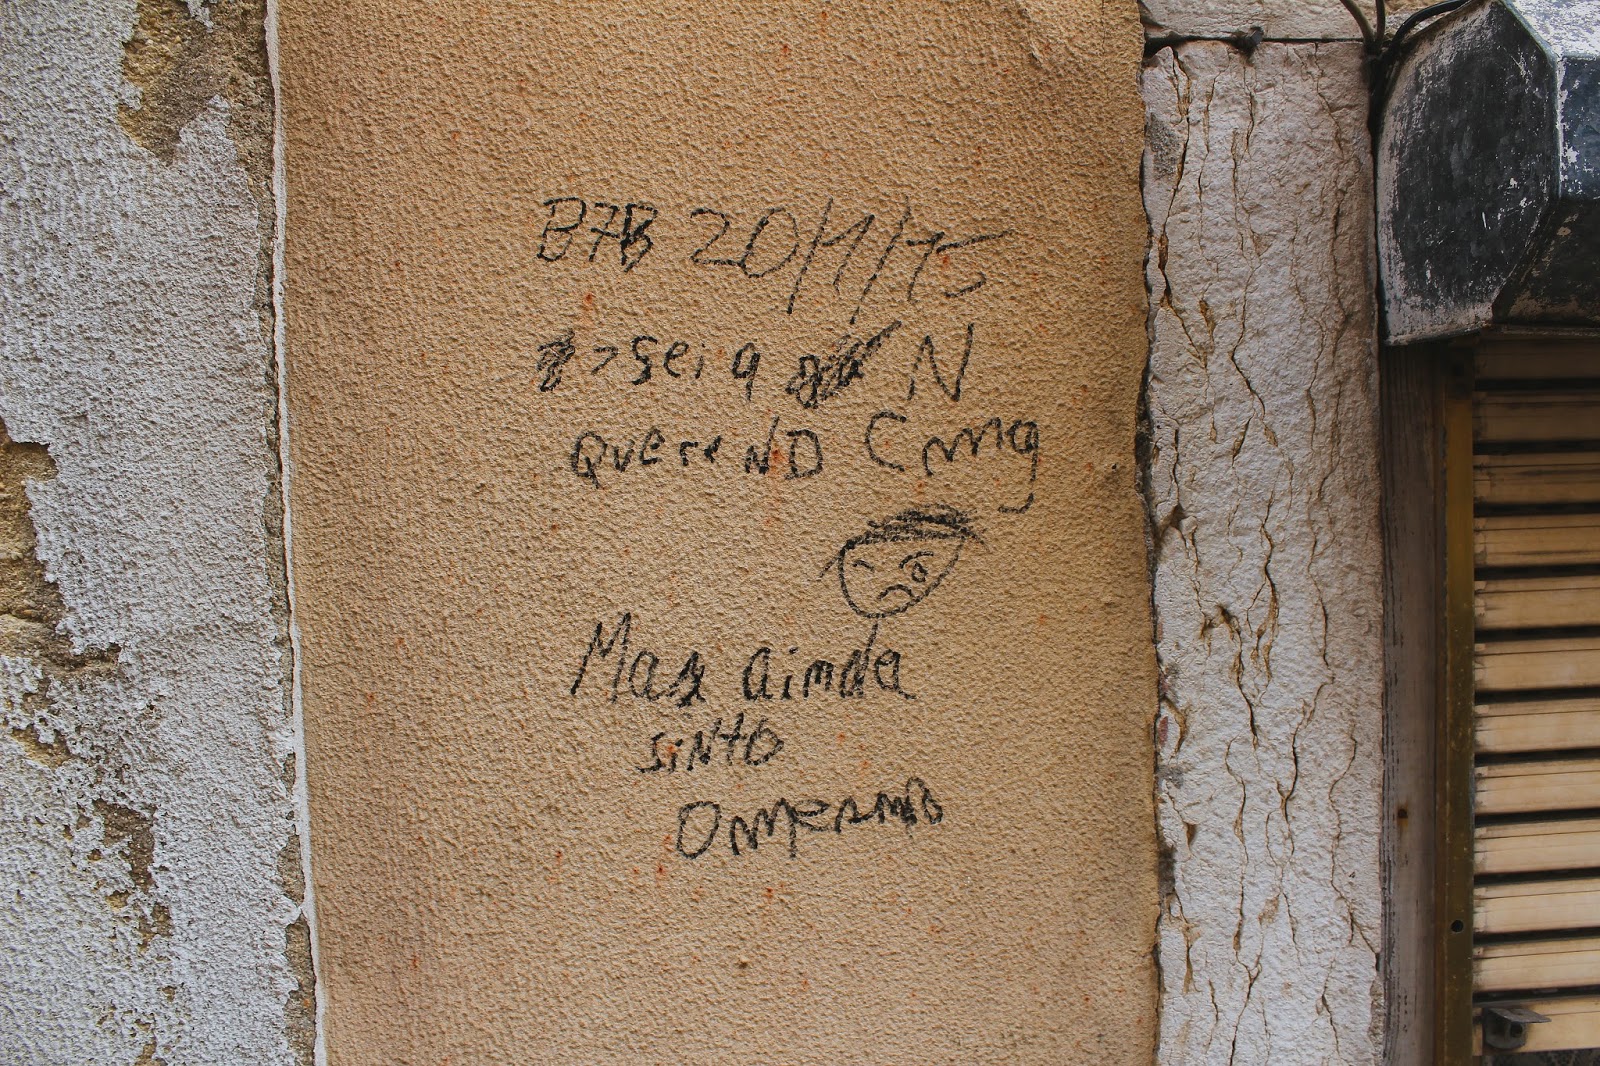 B7B 20/1/15
> sei q N
QuereND Cmmg
Mas ainda
SiNto